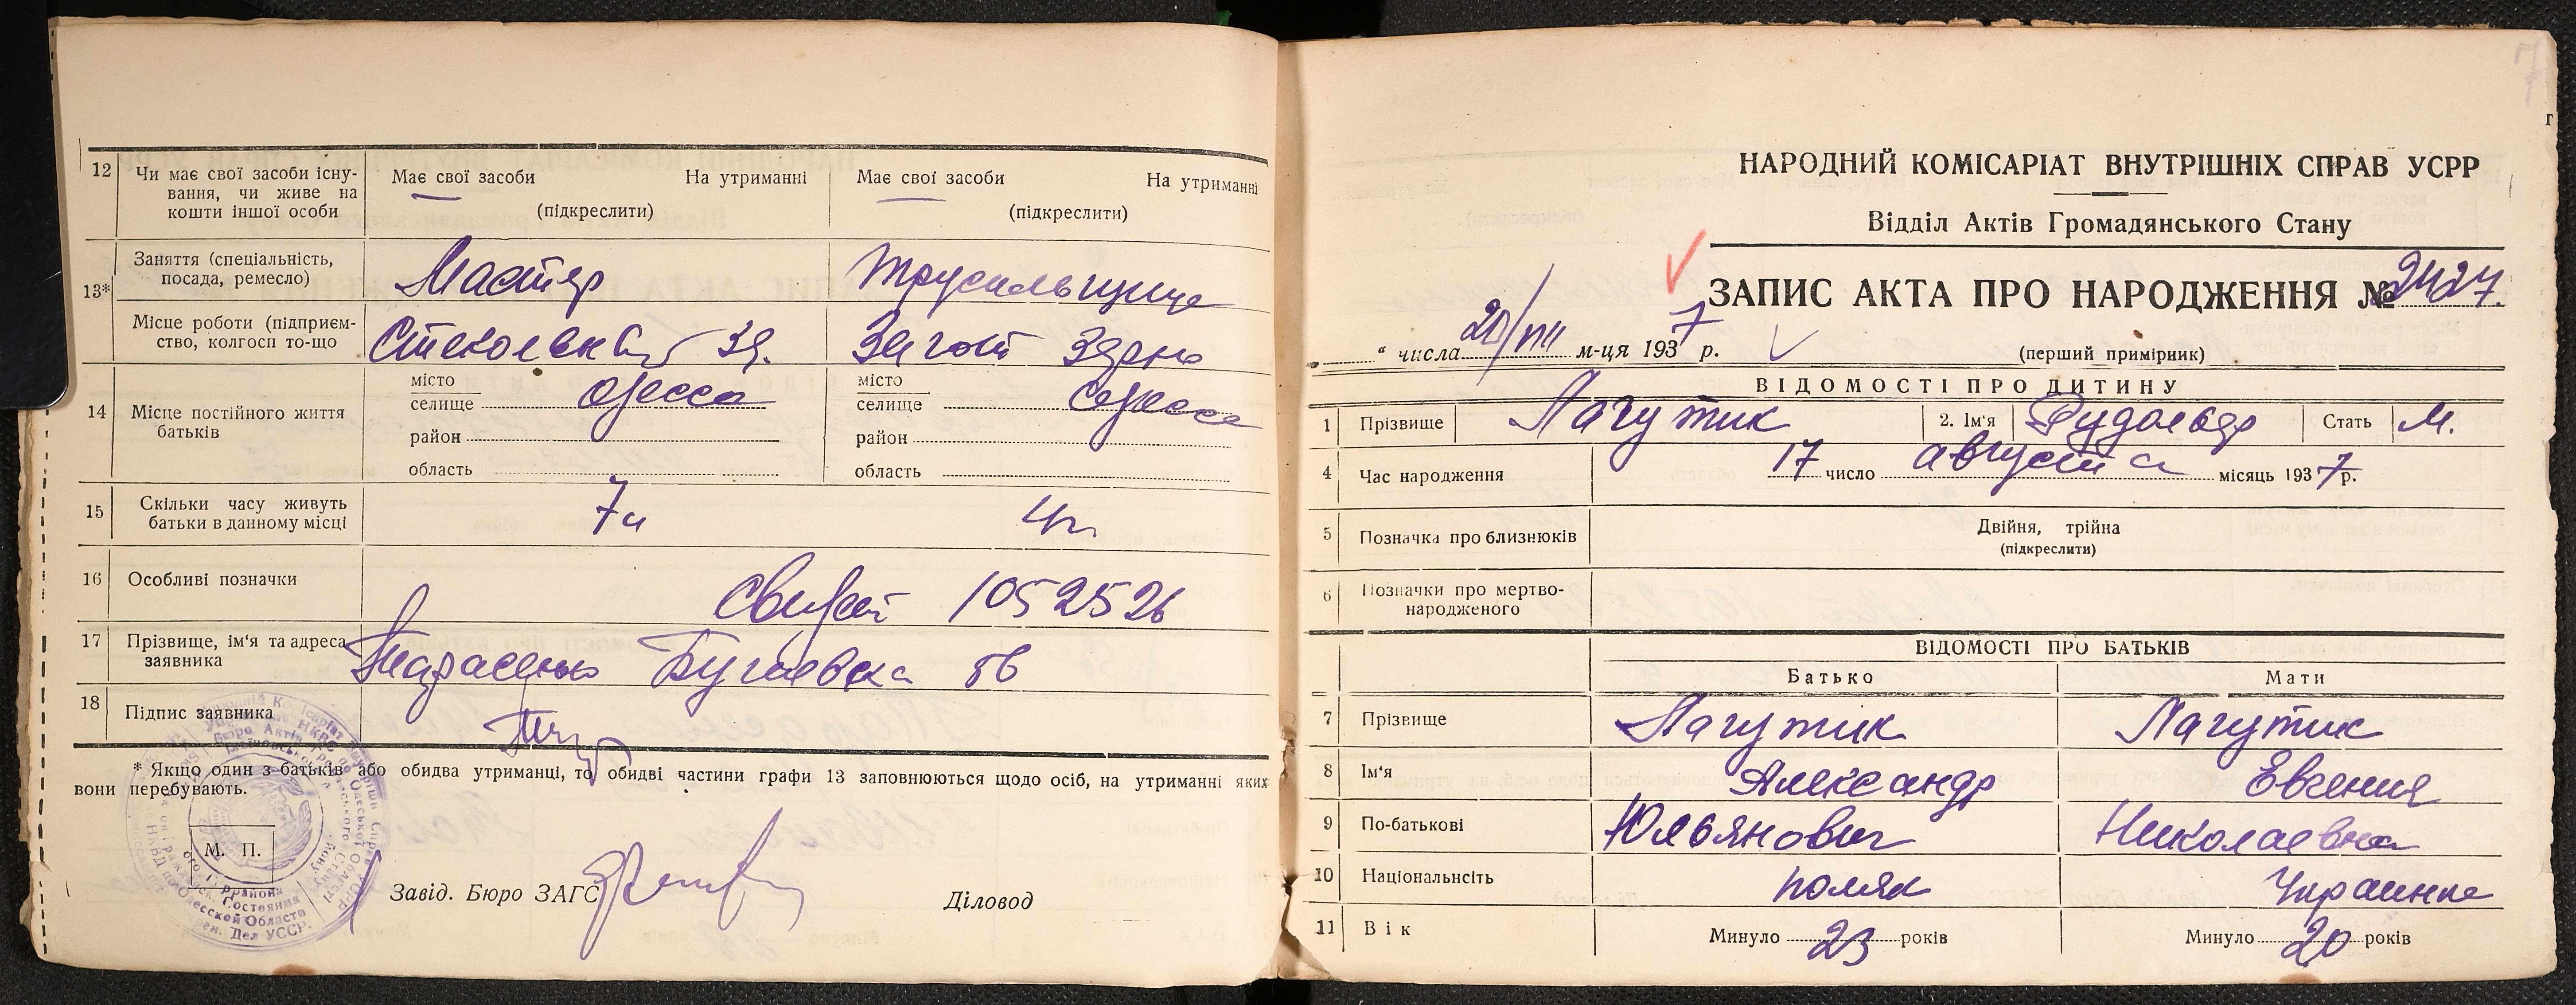 12 Чи має свої засоби існу-
вання, чи живе на
кошти іншої особи
Має свої засоби На утриманні
(підкреслити)
Має свої засоби На утриманні
(підкреслити)
13* Заняття (спеціальність,
посада, ремесло)
Мастер
Місце роботи (підприєм-
ство, колгосп то-що
Загот Зерно
14 Місце постійного життя
батьків
місто
селище Одесса
район
область
місто
селище Одесса
район
область
15 Скільки часу живуть
батьки в данному місці
7 4
16 Особливі позначки
1052526
17 Прізвище, ім'я та адреса
заявника
Тарасенко Бугаевска
18 Підпис заявника
* Якщо один з батьків або обидва утриманці, то обидві частини графи 13 заповнюються щодо осіб, на утриманні яких
вони перебувають.
М. П.
Завід. Бюро ЗАГС
Діловод
НАРОДНИЙ КОМІСАРІАТ ВНУТРІШНІХ СПРАВ УСРР
Відділ Актів Громадянського Стану
ЗАПИС АКТА ПРО НАРОДЖЕННЯ № 2427.
" числа 20/VIII м-ця 1937 р.
(перший примірник)
ВІДОМОСТІ ПРО ДИТИНУ
1 Прізвище Лагутик 2. Ім'я Рудольф Стать М.
4 Час народження 17 число августа місяць 1937 р.
5 Позначка про близнюків
Двійня, трійна
(підкреслити)
6 Позначки про мертво-
народженого
ВІДОМОСТІ ПРО БАТЬКІВ
Батько Мати
7 Прізвище Лагутик Лагутик
8 Ім'я Александр Евгения
9 По-батькові Юльянович Николаевна
10 Національність поляк Украинка
11 Вік Минуло 23 років Минуло 20 років